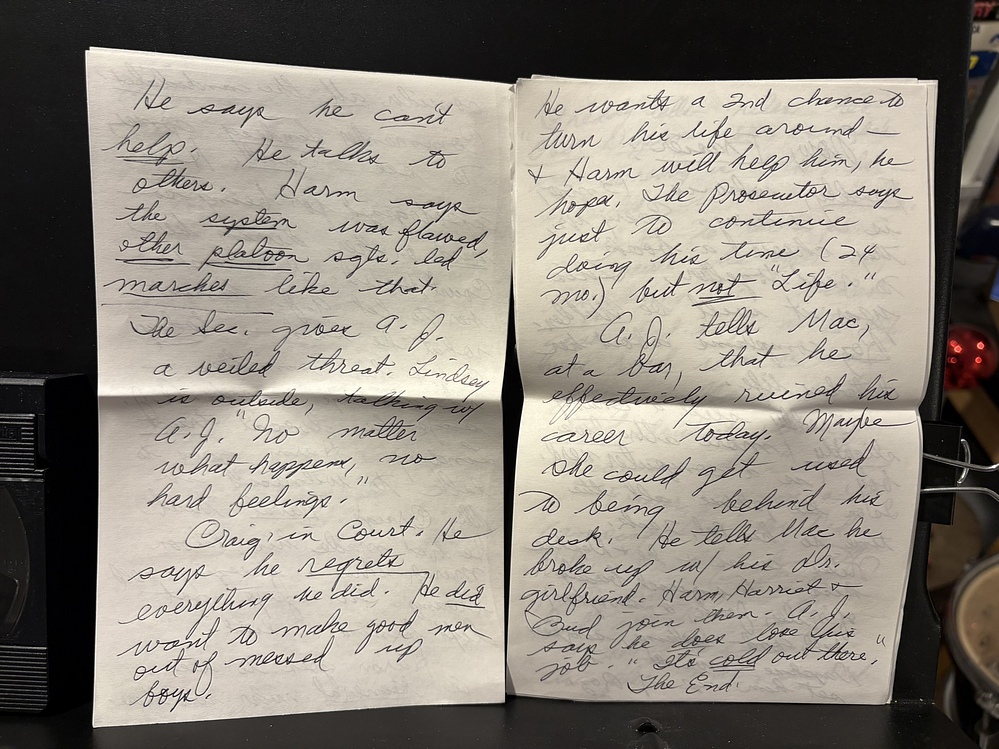 He says he can't
help. He talks to
others. Harm says
the system was flawed,
other platoon sgts. led
marches like that.
The Sec. gives A. J.
a veiled threat. Lindsey
is outside, talking w/
A.J. "No matter
what happens, no
hard feelings."
Craig, in Court. He
says he regrets
everything he did. He did
want to make good men
out of messed up
boys.
He wants a 2nd chance to
turn his life around—
+ Harm will help him, he
hopes. The Prosecutor says
just to continue
doing his time (24
mo.) but not "Life."
A. J. tells Mac,
at a bar, that he
effectively ruined his
career today. Maybe
she could get used
to being behind his
desk. He tells Mac he
broke up w/ his Dr.
girlfriend. Harm, Harriet +
Bud join them. A. J.
says he does lose his
job. "It's cold out there."
The End.